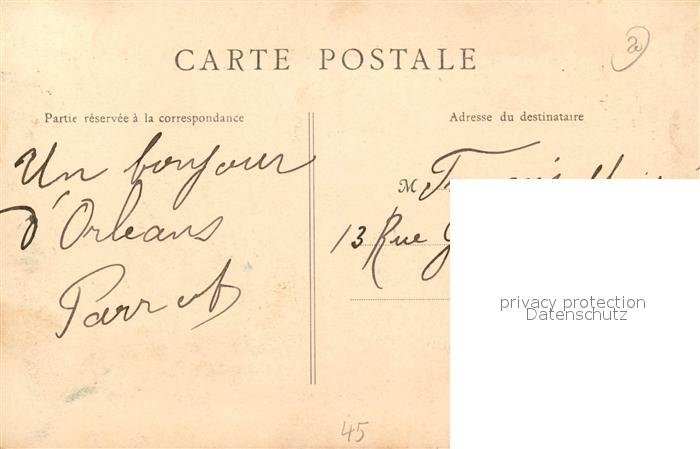 CARTE POSTALE
Partie réservée à la correspondance
Adresse du destinataire
Un bonjour
d'Orleans
M
13 Rue
privacy protection
Datenschutz
45